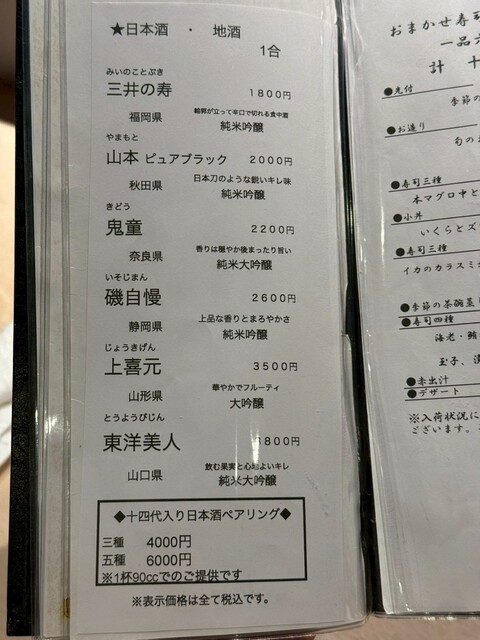 ★日本酒 ・ 地酒
1合
みいのことぶき
三井の寿 1800円
福岡県 輪郭が立って辛口で切れる食中酒
純米吟醸
やまもと
山本 ピュアブラック 2000円
秋田県 日本刀のような鋭いキレ味
純米吟醸
きどう
鬼童 2200円
奈良県 香りは穏やか後まったり旨い
純米大吟醸
いそじまん
磯自慢 2600円
静岡県 上品な香りとまろやかさ
純米吟醸
じょうきげん
上喜元 3500円
山形県 華やかでフルーティ
大吟醸
とうようびじん
東洋美人 800円
山口県 飲む果実と心地よいキレ
純米大吟醸
◆十四代入り日本酒ペアリング◆
三種 4000円
五種 6000円
※1杯90ccでのご提供です
※表示価格は全て税込です。
おまかせ寿司
一品
計 十
●先付
季節の
●お造り
旬のお
●寿司三種
本マグロ中と
●小丼
いくらとズ
●寿司三種
イカのカラスミ
●季節の茶碗蒸
●寿司四種
海老・鮪
玉子、
●赤出汁
●デザート
※入荷状況に
ございます。